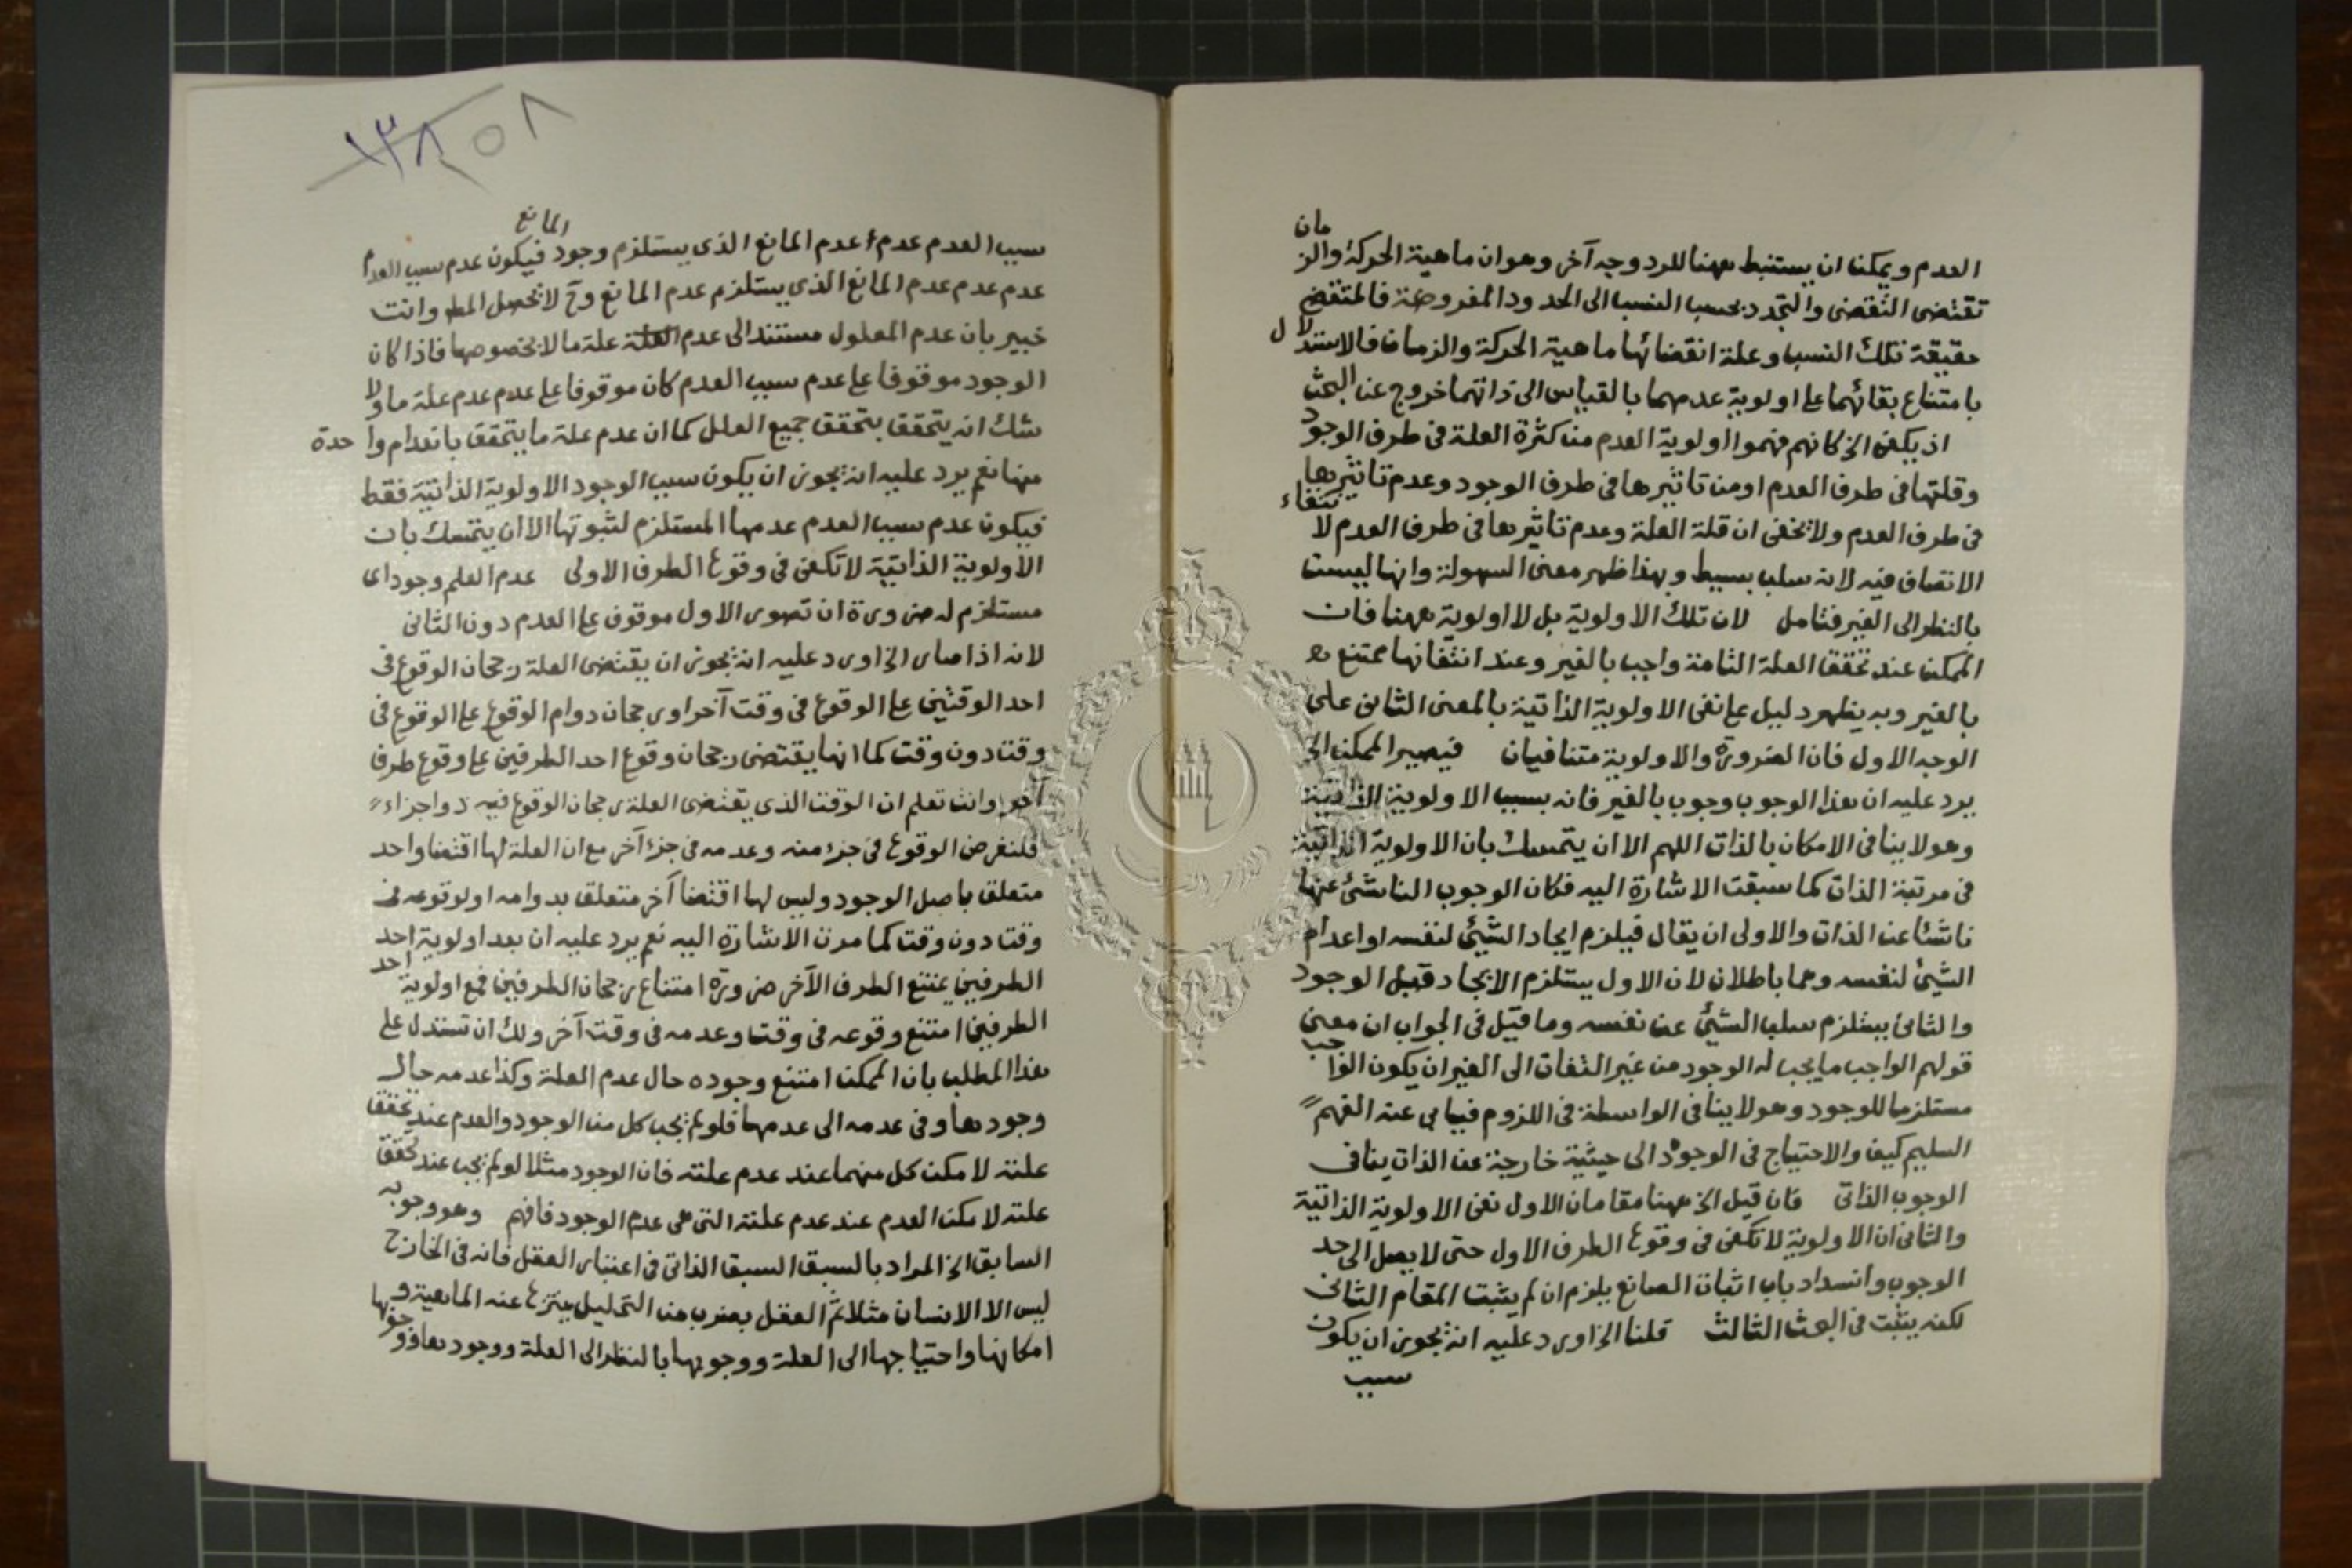 العدم ويمكن ان يستنبط ههنا للرد وجه آخر وهو ان ماهية الحركة والزمان
تقتضى التقضى والتجدد بحسب النسب الى الحدود المفروضة فالمتقضى
حقيقة تلك النسب وعلة انقضائها ماهية الحركة والزمان فالاستدلال
بامتناع بقائهما على اولوية عدمهما بالقياس الى ذاتهما خروج عن البحث
اذ يكفى الخ كانهم فهموا اولوية العدم من كثرة العلة فى طرف الوجود
وقلتها فى طرف العدم او من تاثيرها فى طرف الوجود وعدم تاثيرها
فى طرف العدم ولا يخفى ان قلة العلة وعدم تاثيرها فى طرف العدم لانتفاء
الاتصاف فيه لانه سلب بسيط وبهذا ظهر معنى السهولة وانها ليست
بالنظر الى الغير فتامل لان تلك الاولوية بل لا اولوية ههنا فان
الممكن عند تحقق العلة التامة واجب بالغير وعند انتفائها ممتنع
بالغير وبه يظهر دليل على نفى الاولوية الذاتية بالمعنى الثانى على
الوجه الاول فان الضرورة والاولوية متنافيان فيصير الممكن الخ
يرد عليه ان هذا الوجوب وجوب بالغير فانه بسبب الاولوية الذاتية
وهو لا ينافى الامكان بالذات اللهم الا ان يتمسك بان الاولوية الذاتية
فى مرتبة الذات كما سبقت الاشارة اليه فكان الوجوب الناشئ عنها
ناشئا عن الذات والاولى ان يقال فيلزم ايجاد الشئ لنفسه او اعدام
الشئ لنفسه وهما باطلان لان الاول يستلزم الايجاد قبل الوجود
والثانى يستلزم سلب الشئ عن نفسه وما قيل فى الجواب ان معنى
قولهم الواجب ما يجب له الوجود من غير التفات الى الغير ان يكون الواجب
مستلزما للوجود وهو لا ينافى الواسطة فى اللزوم فيابى عنه الفهم
السليم كيف والاحتياج فى الوجود الى حيثية خارجة عن الذات ينافى
الوجوب الذاتى فان قيل الخ ههنا مقامان الاول نفى الاولوية الذاتية
والثانى ان الاولوية لا تكفى فى وقوع الطرف الاول حتى لا يصل الى حد
الوجوب وانسداد باب اثبات الصانع يلزم ان لم يثبت المقام الثانى
لكنه يثبت فى البحث الثالث قلنا الخ اورد عليه انه يجوز ان يكون
سبب
١٣٨ ٥٨
سبب العدم عدم عدم المانع الذى يستلزم وجود المانع فيكون عدم سبب العدم
عدم عدم عدم المانع الذى يستلزم عدم المانع وح لا يحصل المط وانت
خبير بان عدم المعلول مستند الى عدم علة ما لا بخصوصها فاذا كان
الوجود موقوفا على عدم سبب العدم كان موقوفا على عدم عدم علة ما ولا
شك انه يتحقق بتحقق جميع العلل كما ان عدم علة ما يتحقق بانعدام واحدة
منها نعم يرد عليه انه يجوز ان يكون سبب الوجود الاولوية الذاتية فقط
فيكون عدم سبب العدم عدمها المستلزم لثبوتها الا ان يتمسك بان
الاولوية الذاتية لا تكفى فى وقوع الطرف الاولى عدم العلم وجود اى
مستلزم له ضرورة ان تصور الاول موقوف على العدم دون الثانى
لانه اذا صار الخ اورد عليه انه يجوز ان يقتضى العلة رجحان الوقوع فى
احد الوقتين على الوقوع فى وقت آخر او رجحان دوام الوقوع على الوقوع فى
وقت دون وقت كما انها يقتضى رجحان وقوع احد الطرفين على وقوع طرف
آخر وانت تعلم ان الوقت الذى يقتضى العلة رجحان الوقوع فيه ذو اجزاء
فلنفرض الوقوع فى جزء منه وعدمه فى جزء آخر مع ان العلة لها اقتضا واحد
متعلق باصل الوجود وليس لها اقتضا آخر متعلق بدوامه او لوقوعه فى
وقت دون وقت كما مرت الاشارة اليه نعم يرد عليه ان بعد اولوية احد
الطرفين يمتنع الطرف الآخر ضرورة امتناع رجحان الطرفين فمع اولوية احد
الطرفين امتنع وقوعه فى وقت وعدمه فى وقت آخر ولك ان تستدل على
هذا المطلب بان الممكن امتنع وجوده حال عدم العلة وكذا عدمه حال
وجودها وفى عدمه الى عدمها فلو لم يجب كل من الوجود والعدم عند تحقق
علته لامكن كل منهما عند عدم علته فان الوجود مثلا لو لم يجب عند تحقق
علته لامكن العدم عند عدم علته التى هى عدم الوجود فافهم وهو وجوبه
السابق الخ المراد بالسبق السبق الذاتى فى اعتبار العقل فانه فى الخارج
ليس الا الانسان مثلا ثم العقل بضرب من التحليل ينتزع عنه الماهية و
امكانها واحتياجها الى العلة ووجوبها بالنظر الى العلة ووجودها ووجوبها